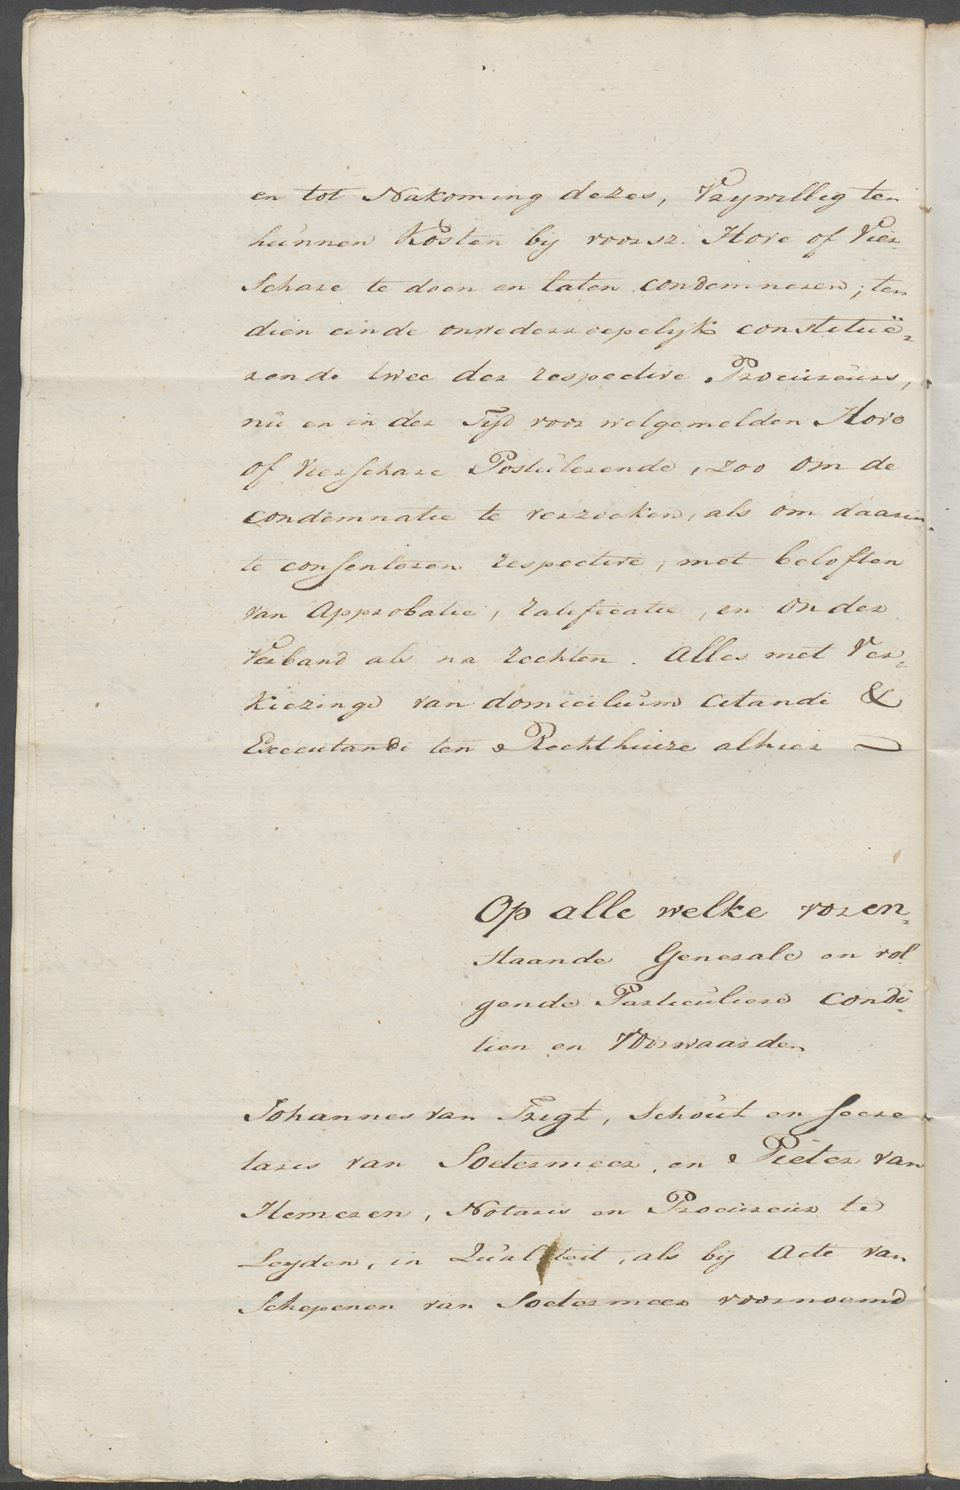 en tot Nakoming dezes, Vrywillig ten
hunnen Kosten bij voorsz. Hove of Vier-
Schare te doen en laten condemneren; ten
dien einde onwederroepelyk constitue-
rende twee der respective Procureurs,
nu en in der Tijd voor welgemelden Hove
of Vierschare Postulerende, zoo om de
condemnatie te verzoeken, als om daarin
te consenteren respective, met beloften
van Approbatie, ratificatie, en onder
Verband als na rechten. Alles met Ver-
kiezinge van domicilium Citandi &
Executandi ten Rechthuize alhier —
Op alle welke voren-
staande Generale en vol
gende Particuliere Condi-
tien en Voorwaarden
Johannes van Trigt, Schout en Secre-
taris van Soetermeer, en Pieter van
Hemeren, Notaris en Procureur te
Leyden, in Qualiteit, als bij Acte van
Schepenen van Soetermeer voornoemd